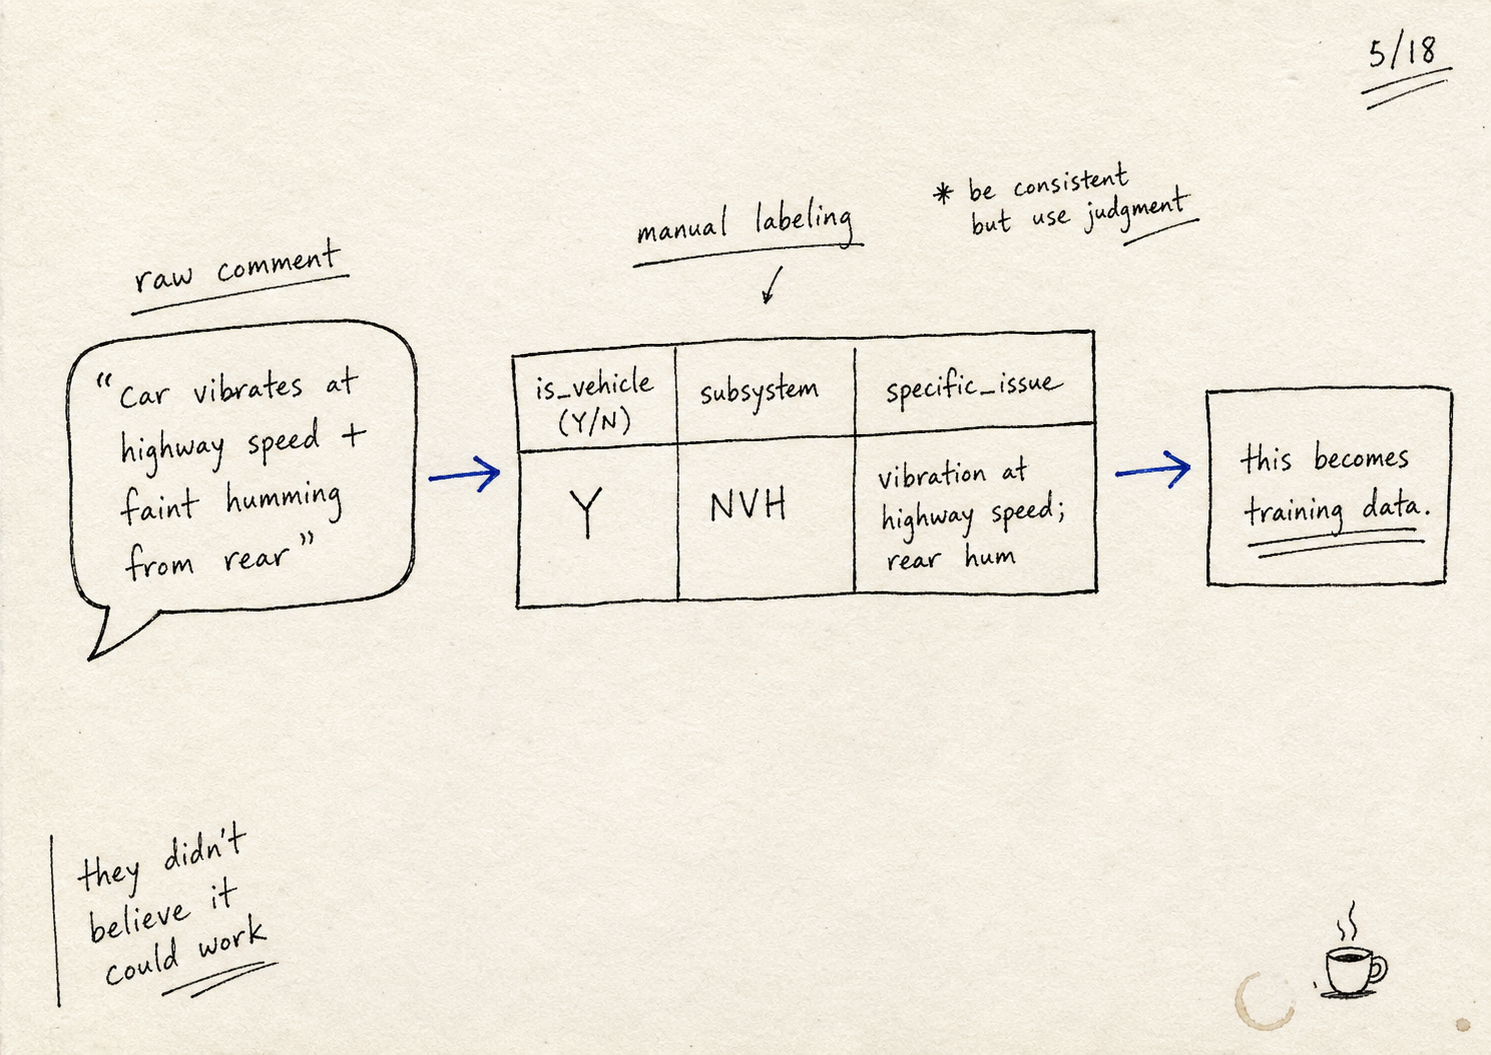 5/18
* be consistent
but use judgment
manual labeling
raw comment
"Car vibrates at
highway speed +
faint humming
from rear"
is_vehicle
(Y/N)
subsystem
specific_issue
Y
NVH
vibration at
highway speed;
rear hum
this becomes
training data.
they didn't
believe it
could work